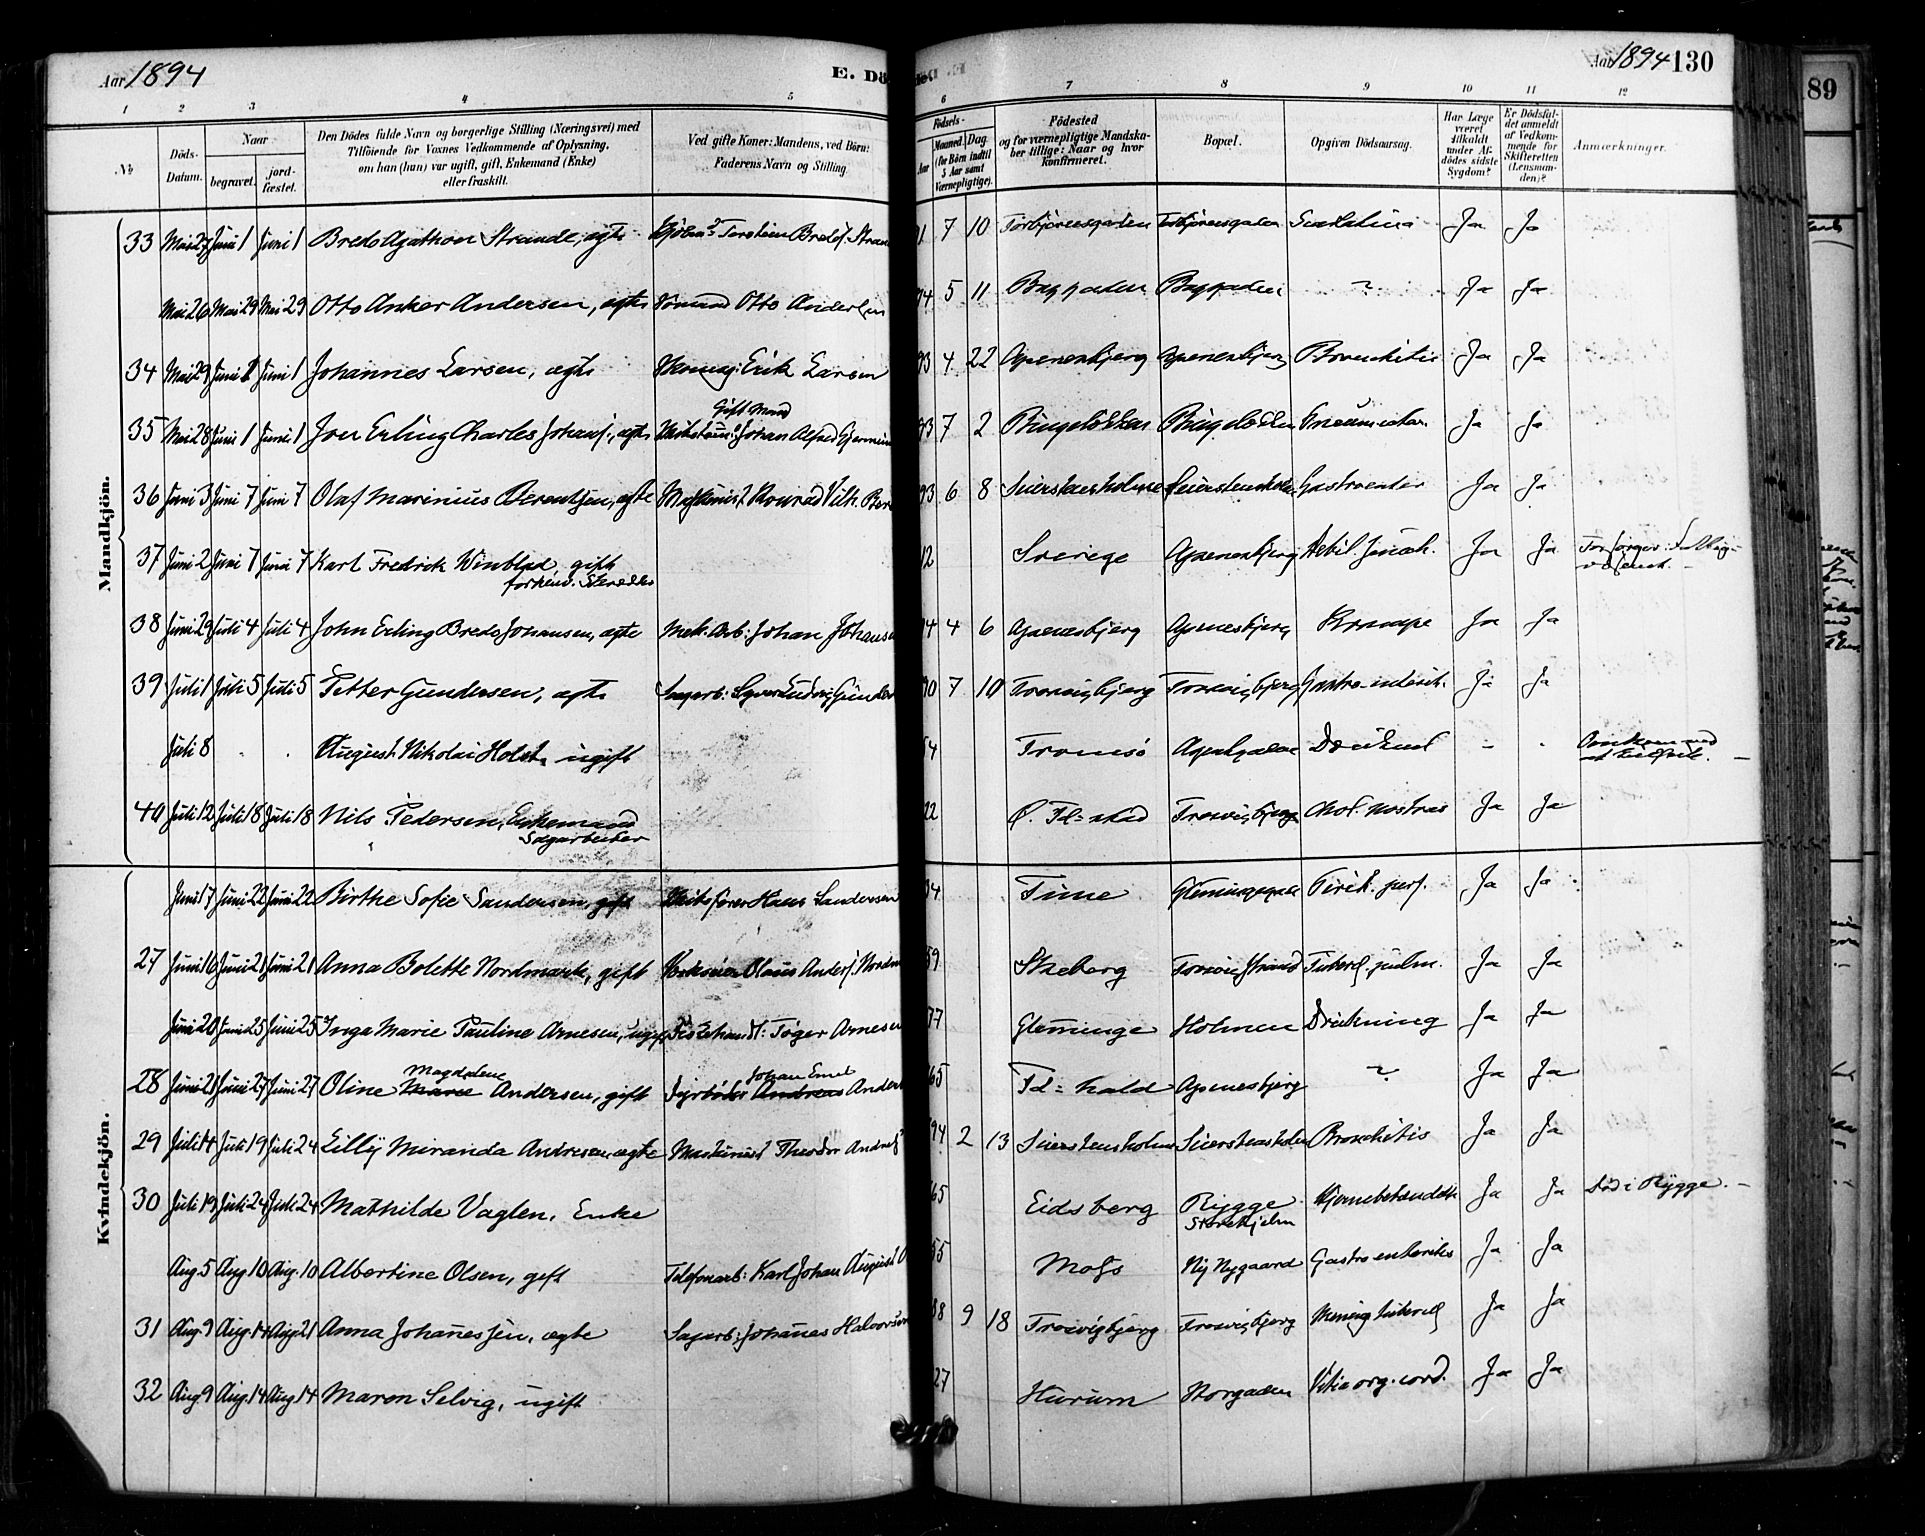 Aar 1894
E. Dö
Aar 1894 130
89
1 2 3 4 5 6 7 8 9 10 11 12
№
Döds-Datum.
Naar
begravet.
jord-fæstet.
Den Dödes fulde Navn og borgerlige Stilling (Næringsvei) med
Tilföiende for Voxnes Vedkommende af Oplysning,
om han (hun) var ugift, gift, Enkemand (Enke)
eller fraskilt.
Ved gifte Koner: Mandens, ved Börn:
Faderens Navn og Stilling.
Födsels-
Aar
Maaned. Dag.
(for Börn indtil
5 Aar samt
Værnepligtige).
Födested
og for værnepligtige Mandska-
ber tillige: Naar og hvor
konfirmeret.
Bopæl.
Opgiven Dödsaarsag.
Har Læge
været
tilkaldt
under Af-
dödes sidste
Sygdom?
Er Dödsfal-
det anmeldt
af Vedkom-
mende for
Skifteretten
(Lensman-
den)?
Anmærkninger.
Mandkjön.
33 Mai 27 Juni 1 Juni 1 Bredo Agathon Strande, ægte Torstein Bredes. Stran 7 10 Torbjörnsgaden Torbjörnsgaden Ja Ja
Mai 26 Mai 29 Mai 29 Otto Anker Andersen, ægte Otto Andersen 94 5 11 Baggaden Baggaden ? Ja Ja
34 Mai 29 Juni 1 Juni 1 Johannes Larsen, ægte Erik Larsen 93 4 22 Apenesbjerg Apenesbjerg Bronchitis Ja Ja
Gift Mand
35 Mai 28 Juni 1 Juni 1 Joer Erling Charles Johans., ægte Johan Alfred 93 7 2 Ja Ja
36 Juni 3 Juni 7 Juni 7 Olaf Marinius Berentsen, ægte Maskinist Konrad Vilh. Ber 93 6 8 Seierstensholmen Seierstensholm Gastroenter Ja Ja
37 Juni 2 Juni 7 Juni 7 Karl Fredrik Winblad, gift 12 Sverige Apenesbjerg Ja Ja
forhenv.
38 Juni 29 Juli 4 Juli 4 John Erling Bredo Johansen, ægte Mek. Arb: Johan Johanse 94 4 6 Apenesbjerg Apenesbjerg Krampe Ja Ja
39 Juli 1 Juli 5 Juli 5 Petter Gundersen, ægte Sagarb: Ludvig Gunder 90 7 10 Trosvigbjerg Trosvigbjerg Gastro-enterit. Ja Ja
Juli 8 August Nikolai Holst, ugift 54 Tromsö Druknet Omkommed
40 Juli 12 Juli 18 Juli 18 Nils Pedersen, Enkemand 22 Ø. Fd=stad Trosvigbjerg Chol. nostras Ja Ja
Sagarbeider
Kvindekjön.
Juni 17 Juni 22 Juni 22 Birthe Sofie Sandersen, gift Hans Sandersen 34 Tune Perit. perf. Ja Ja
27 Juni 16 Juni 21 Juni 21 Anna Bolette Nordmark, gift Olaus Anders. Nordm 59 Skeberg Trosvigstrand Tuberc. pulm. Ja Ja
Juni 20 Juni 25 Juni 25 Inga Marie Pauline Arnesen, ugift Fiskehandl: Töger Arnesen 77 Glemminge Holmen Drukning Ja Ja
Magdalene Johan Emil
28 Juni 21 Juni 27 Juni 27 Oline Marie Andersen, gift Fyrböder Andreas Anders 65 Fd=hald Apenesbjerg ? Ja Ja
29 Juli 14 Juli 19 Juli 24 Lilly Miranda Andresen, ægte Maskinist Theodor Andres 94 2 13 Seierstensholmen Seierstensholm Bronchitis Ja Ja
30 Juli 19 Juli 24 Juli 24 Mathilde Vaglen, Enke 65 Eidsberg Rygge Hjernebetændelse Ja Ja Död i Rygge.
Aug. 5 Aug. 10 Aug. 10 Albertine Olsen, gift Telefonarb: Karl Johan August O 55 Moss Ny Nygaard Gastro enteritis Ja Ja
31 Aug. 9 Aug. 14 Aug. 21 Anna Johannessen, ægte Sagarb: Johanes Halvorsen 88 9 18 Trosvigbjerg Trosvigbjerg Mening tubercul Ja Ja
32 Aug. 9 Aug. 14 Aug. 14 Maren Selvig, ugift 27 Hurum Storgaden Vitia org. cord. Ja Ja